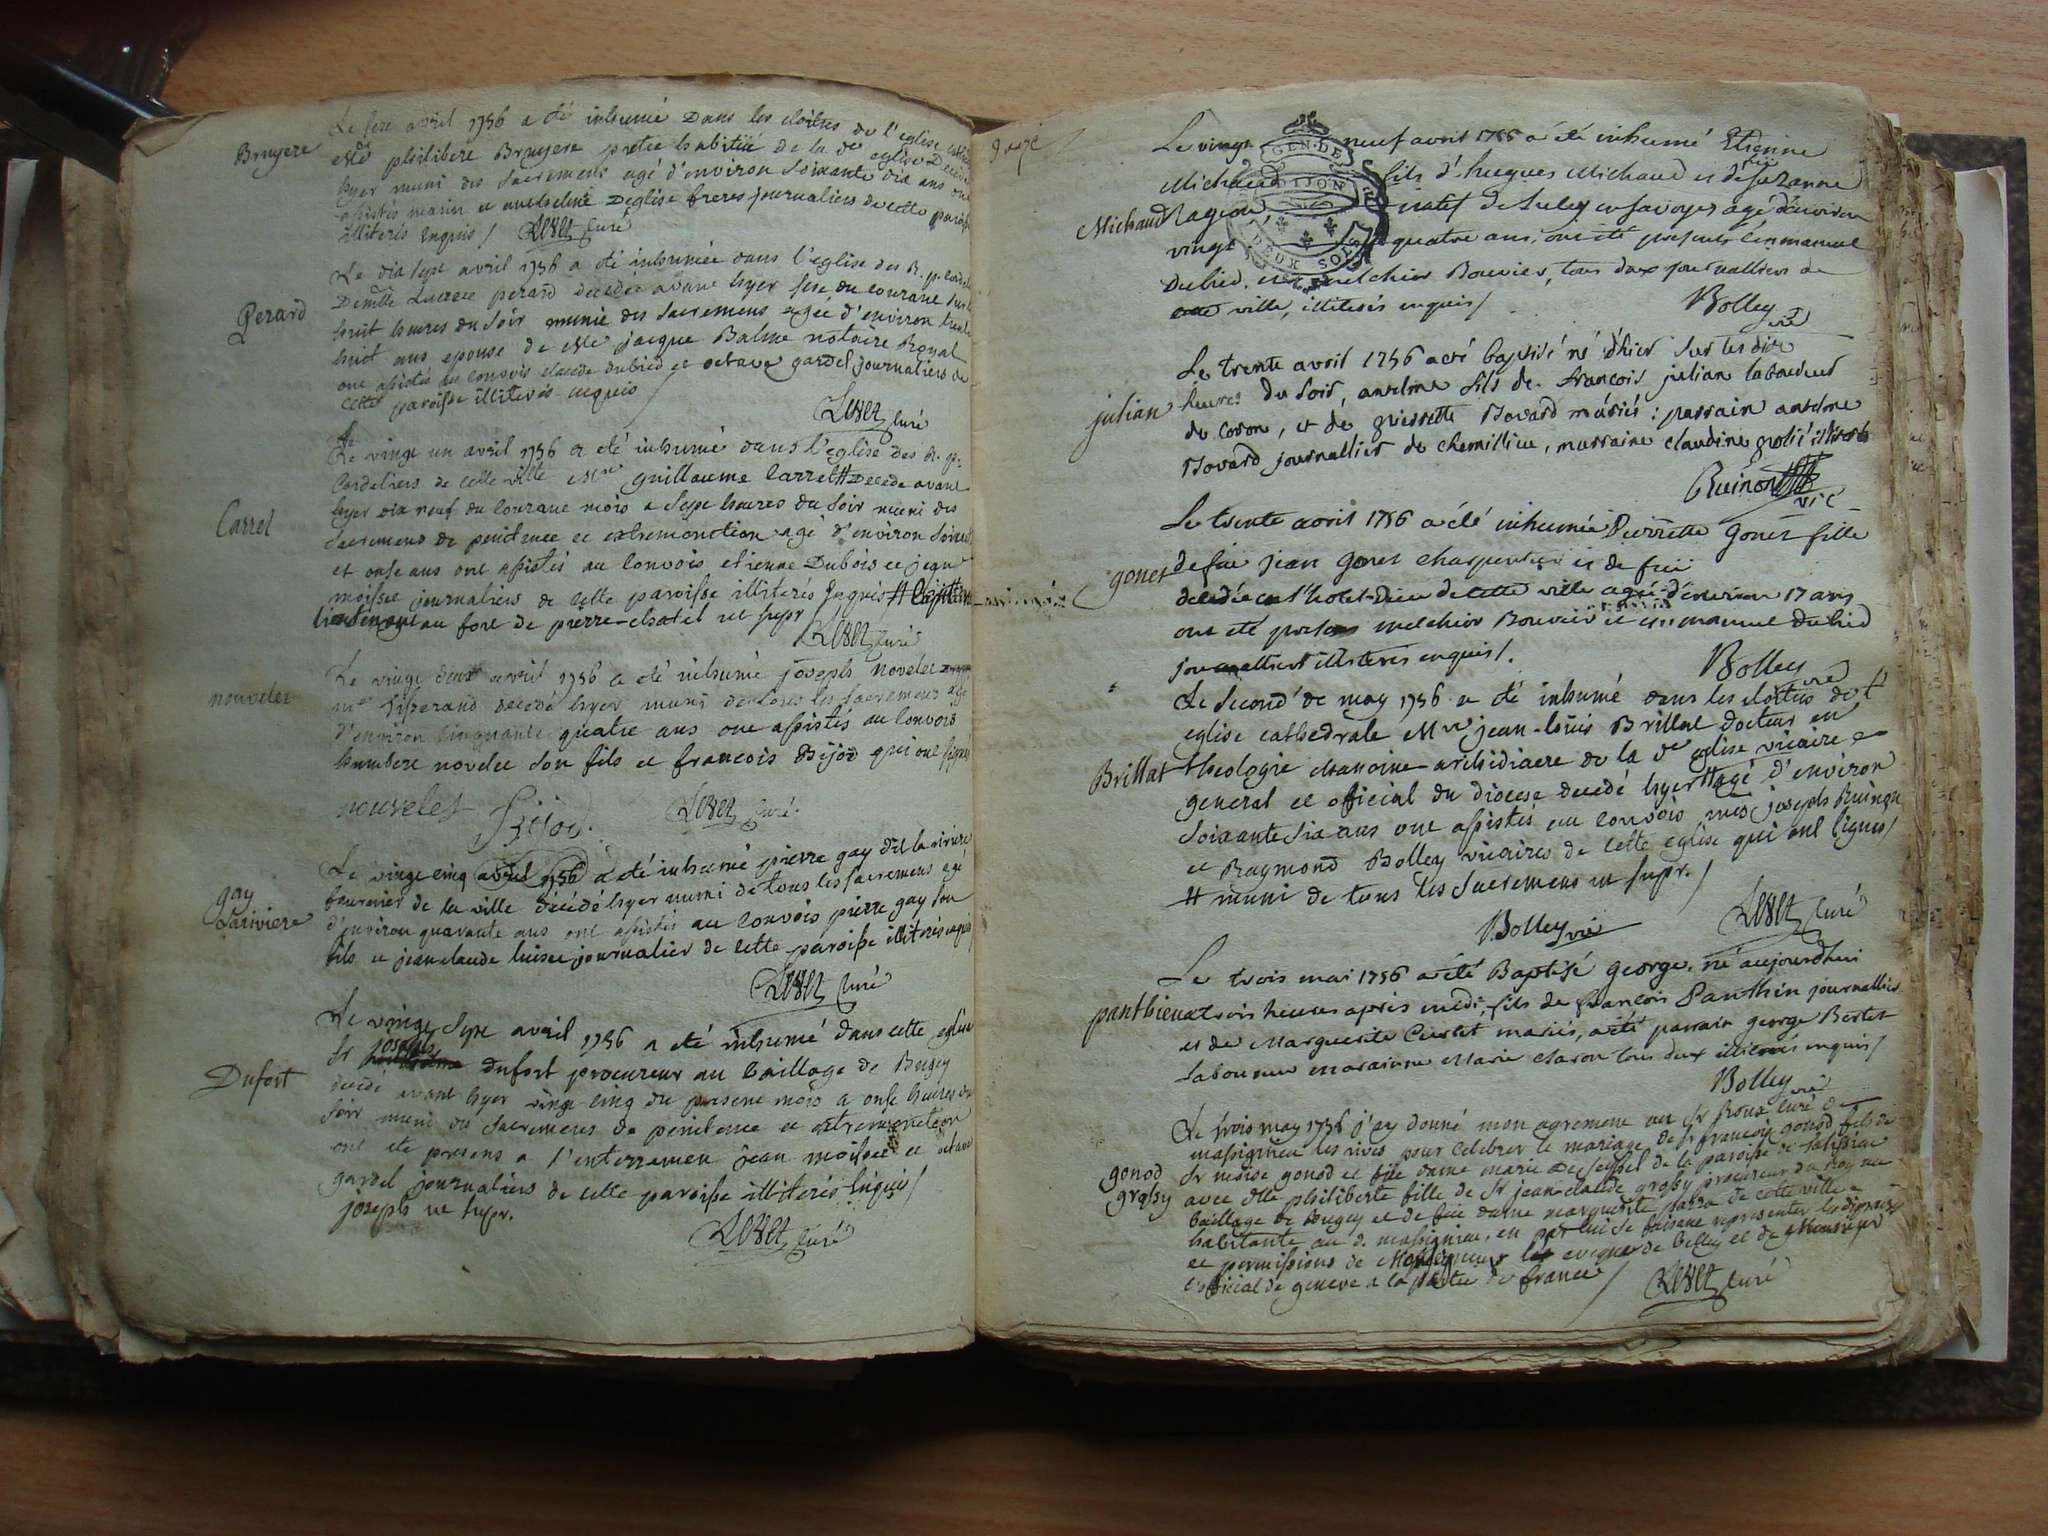 Bruyere
Le seze avril 1756 a été inhumé Dans les cloitres de l'eglise
Mre philibere Bruyere pretre habitüé de la de eglise Decedé
hyer muni des Sacremens agé d'environ Soixante dix ans ont
assistés marin et antelme Deglise freres journaliers de cette paroisse
illiterés enquis / Levet Curé
Perard
Le dix sept avril 1756 a été inhumée dans l'eglise des R. p. Cordel
Demlle Lucrece perard decedée avant hyer seze du courant sur
huit heures du soir munie des sacremens agée d'environ trente
huit ans epouse de Me jacque Balme notaire Royal
ont assistés au convois claude dubied et octave gardel journaliers de
cette paroisse illiterés enquis /
Levet curé
Carrel
Le vingt un avril 1756 a été inhumé dans l'eglise des R. p.
Cordeliers de cette ville Mre guillaume Carrel # Decede avant
hyer dix neuf du courant mois a sept heures du soir muni des
sacremens de penitence et extremonction agé d'environ soixante
et onse ans ont assistés au convois etienne Dubois et jean
moissee journaliers de cette paroisse illiterés Enquis #
lieutenant au fort de pierre-chatel ut supr
Levet Curé
nouvelet
Le vingt deux avril 1756 a été inhumé joseph novelet
me Tisserand decedé hyer muni de tous les sacremens agé
d'environ cinquante quatre ans ont assistés au convois
humbert novelet son fils et francois Bijod qui ont signé
nouvelet Bijod. Levet Curé.
gay
Lariviere
Le vingt cinq avril 1756 a été inhumé pierre gay dit la riviere
fournier de la ville décédé hyer muni de tous les sacremens agé
d'environ quarante ans ont assistés au convois pierre gay son
fils et jean claude luiset journalier de cette paroisse illiterés enquis
Levet Curé
Dufort
Le vingt sept avril 1756 a été inhumé dans cette eglise
Sr joseph dufort procureur au bailliage de Bugey
decede avant hyer vingt cinq du present mois a onse heures du
soir muni des sacremens de penitence et extremonction
ont été presens a l'enterrement jean moissee et octave
gardel journaliers de cette paroisse illiterés Enquis /
joseph ut supr.
Levet Curé
GEN. DE
DIJON
DEUX SOLS
Michaud
Le vingt neuf avril 1756 a été inhumé Etienne
Michaud fils d'hugues Michaud et de Suzanne
Nagion, natif de Sulex en Savoyes agé d'environ
vingt quatre ans, ont été presents Emmanuel
Dubied, et melchior Bouvier, tous deux journalliers de
cette ville, illiterés enquis /
Bolley vic
julian
Le trente avril 1756 a été baptisé né d'hier sur les dix
heures du Soir, anselme fils de francois julian laboureur
de coron, et de pierrette Bovard mariés : parrain antelme
Bovard journallier de chemillieu, marraine claudine
Ruinon vic
gonet
Le trente avril 1756 a été inhumée Pierrette gonet fille
de feu jean gonet charpentier et de feue
decedée en l'hotel-Dieu de cette ville agée d'environ 17 ans
ont été presens melchior Bouvier et emmanuel dubied
journalliers illiteres enquis /.
Bolley vic
Brillat
Le Second de may 1756 a été inhumé dans les cloitres de l'
eglise cathedrale Mre jean-loüis Brillat docteur en
theologie chanoine archidiacre de la de eglise vicaire
general et official du diocese decedé hyer # agé d'environ
soixante six ans ont assistés au convois mes joseph Ruinon
et Raymond Bolley vicaires de cette eglise qui ont signés /
# muni de tous les sacremens ut supr. /
Bolley vic Levet Curé
panthieu
Le trois mai 1756 a été Baptisé george, né aujourdhui
a trois heures apres midi, fils de francois Panthin journallier
et de Marguerite Curtet mariés, a été parrain george Bertet
laboureur marainne Marie charon tous deux illiterés enquis /
Bolley vic
gonod
grosy
Le trois may 1756 j'ay donné mon agrement au Sr Roux curé de
massignieu les rives pour celebrer le mariage de Sr francois gonod fils de
Sr moise gonod et feüe dame marie Deseyssel de la paroisse de
avec dlle philiberte fille de Sr jean-claude grosy procureur du Roy au
bailliage de Bugey et de feüe dame marguerite parra de cette ville
habitante au d. massignieu, en par lui se faisant representer la dispense
et permissions de Monseigneur evêque de belley et de Monsieur
l'official de geneve a la partie de france /
Levet Curé